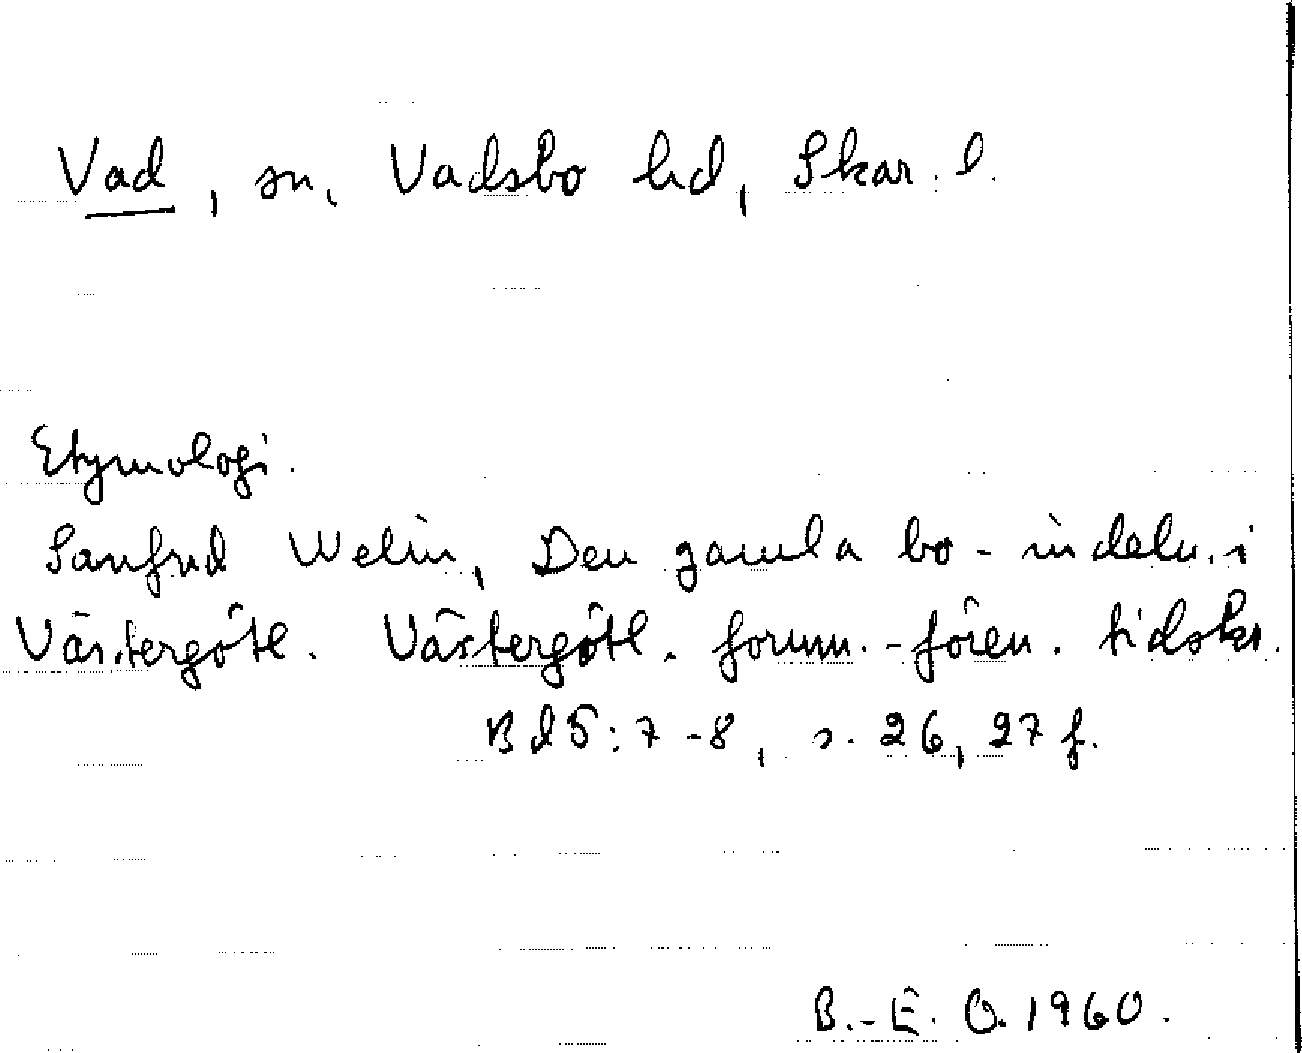 Vad, sn, Vadsbo hd, Skar. l.
Etymologi.
Sanfrid Welin, Den gamla bo-indeln. i
Västergötl. Västergötl. fornm.-fören. tidskr.
Bd 5: 7-8, s. 26, 27 f.
B.-E. O. 1960.